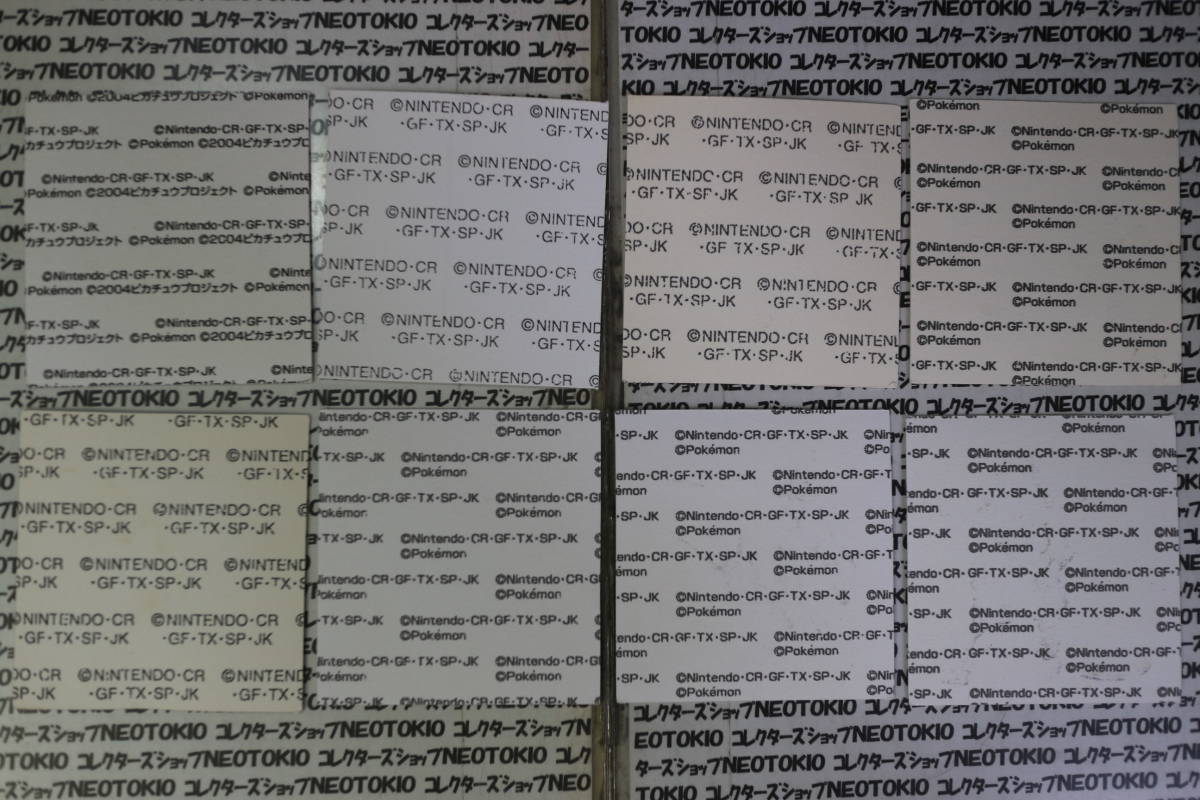 コレクターズショップNEOTOKIO コレクターズショップNEO
TOKIO コレクターズショップNEOTOKIO コレクター
ズショップNEOTOKIO コレクターズショップNEOTO
ターズショップNEOTOKIO コレクターズショップNEO
TOKIO コレクターズショップNEOTOKIO
ズショップNEOTOKIO コレクターズショップNEOTO
KIO コレクターズショップNEOTOKIO
Pokémon ©2004ピカチュウプロジェクト ©Pokémon
GF・TX・SP・JK ©Nintendo・CR・GF・TX・SP・
カチュウプロジェクト ©Pokémon ©2004ピカチュウプロ
©Nintendo・CR・GF・TX・SP・JK ©Ninte
Pokémon ©2004ピカチュウプロジェクト ©Pokémon
F・TX・SP・JK ©Nintendo・CR・GF・TX・SP・
カチュウプロジェクト ©Pokémon ©2004ピカチュウプロ
©Nintendo・CR・GF・TX・SP・JK ©Ninte
Pokémon ©2004ピカチュウプロジェクト ©Pokémon
F・TX・SP・JK ©Nintendo・CR・GF・TX・SP・
カチュウプロジェクト ©Pokémon ©2004ピカチュウプロ
©Nintendo・CR・GF・TX・SP・JK ©Ninte
DO・CR ©NINTENDO・CR ©NINTEN
SP・JK ・GF・TX・SP・JK ・GF・TX・S
NINTENDO・CR ©NINTENDO・CR
・GF・TX・SP・JK ・GF・TX・SP・JK
DO・CR ©NINTENDO・CR ©NINTEN
SP・JK ・GF・TX・SP・JK ・GF・TX・S
©NINTENDO・CR ©NINTENDO・CR
・GF・TX・SP・JK ・GF・TX・SP・JK
DO・CR ©NINTENDO・CR ©NINTEND
SP・JK ・GF・TX・SP・JK ・GF・TX・S
NINTENDO・CR ©NINTENDO・CR
DO・CR ©NINTENDO・CR ©NINTEN
SP・JK ・GF・TX・SP・JK ・GF・TX・S
NINTENDO・CR ©NINTENDO・CR
・GF・TX・SP・JK ・GF・TX・SP・JK
DO・CR ©NINTENDO・CR ©NINTEND
SP・JK ・GF・TX・SP・JK ・GF・TX・S
NINTENDO・CR ©NINTENDO・CR
・GF・TX・SP・JK ・GF・TX・SP・JK
DO・CR ©NINTENDO・CR ©NINTEN
SP・JK ・GF・TX・SP・JK ・GF・TX・S
©Pokémon ©Pokémon
・GF・TX・SP・JK ©Nintendo・CR・GF・TX・SP・JK
©Pokémon
©Nintendo・CR・GF・TX・SP・JK ©Nintendo・C
©Pokémon ©Pokémon
・GF・TX・SP・JK ©Nintendo・CR・GF・TX・SP・JK
©Pokémon
©Nintendo・CR・GF・TX・SP・JK ©Nintendo・C
©Pokémon ©Pokémon
・GF・TX・SP・JK ©Nintendo・CR・GF・TX・SP・JK
©Pokémon
©Nintendo・CR・GF・TX・SP・JK ©Nintendo・C
©Pokémon ©Pokémon
・GF・TX・SP・JK ©Nintendo・CR・GF・TX・SP・JK
©Pokémon
コレクターズショップNEOTOKIO コレクターズショップNEO
ターズショップNEOTOKIO コレクターズショップNEOTOKIO
・GF・TX・SP・JK ・GF・TX・SP・JK
DO・CR ©NINTENDO・CR ©NINTEND
SP・JK ・GF・TX・SP・JK ・GF・TX・S
NINTENDO・CR ©NINTENDO・CR
・GF・TX・SP・JK ・GF・TX・SP・JK
DO・CR ©NINTENDO・CR ©NINTEND
SP・JK ・GF・TX・SP・JK ・GF・TX・S
NINTENDO・CR ©NINTENDO・CR
・GF・TX・SP・JK ・GF・TX・SP・JK
DO・CR ©NINTENDO・CR ©NINTEND
SP・JK ・GF・TX・SP・JK ・GF・TX・S
Nintendo・CR・GF・TX・SP・JK ©Nintendo・CR・GF
Pokémon ©Pokémon
・TX・SP・JK ©Nintendo・CR・GF・TX・SP・JK
©Pokémon
Nintendo・CR・GF・TX・SP・JK ©Nintendo・CR・GF
Pokémon ©Pokémon
・TX・SP・JK ©Nintendo・CR・GF・TX・SP・JK
©Pokémon
Nintendo・CR・GF・TX・SP・JK ©Nintendo・CR・GF
Pokémon ©Pokémon
・TX・SP・JK ©Nintendo・CR・GF・TX・SP・JK
©Pokémon
Nintendo・CR・GF・TX・SP・JK ©Nintendo・CR・GF
Pokémon ©Pokémon
・TX・SP・JK ©Nintendo・CR・GF・TX・SP・JK
émon ©Pokémon
・SP・JK ©Nintendo・CR・GF・TX・SP・JK ©Nin
©Pokémon ©Po
endo・CR・GF・TX・SP・JK ©Nintendo・CR・GF・T
émon ©Pokémon
・SP・JK ©Nintendo・CR・GF・TX・SP・JK ©Nin
©Pokémon ©Po
endo・CR・GF・TX・SP・JK ©Nintendo・CR・GF・T
émon ©Pokémon
・SP・JK ©Nintendo・CR・GF・TX・SP・JK ©Nin
©Pokémon ©Po
endo・CR・GF・TX・SP・JK ©Nintendo・CR・GF・T
émon ©Pokémon
・SP・JK ©Nintendo・CR・GF・TX・SP・JK ©Nin
©Pokémon ©Po
émon ©Pokémon
・SP・JK ©Nintendo・CR・GF・TX・SP・JK ©Ni
©Pokémon ©Po
endo・CR・GF・TX・SP・JK ©Nintendo・CR・GF・T
émon ©Pokémon
・SP・JK ©Nintendo・CR・GF・TX・SP・JK ©Nin
©Pokémon ©Po
endo・CR・GF・TX・SP・JK ©Nintendo・CR・GF・T
émon ©Pokémon
・SP・JK ©Nintendo・CR・GF・TX・SP・JK ©Nin
©Pokémon ©Po
endo・CR・GF・TX・SP・JK ©Nintendo・CR・GF・T
émon ©Pokémon
・SP・JK ©Nintendo・CR・GF・TX・SP・JK ©Nin
ターズショップNEOTOKIO コレクターズショップNEOTOKIO
TOKIO コレクターズショップNEOTOKIO コレクター
ズショップNEOTOKIO コレクターズショップNEOTO
コレクターズショップNEOTOKIO コレクターズショップNEO
EOTOKIO コレクターズショップNEOTOKIO コレクター
ターズショップNEOTOKIO コレクターズショップNEO
TOKIO コレクターズショップNEOTOKIO コレク